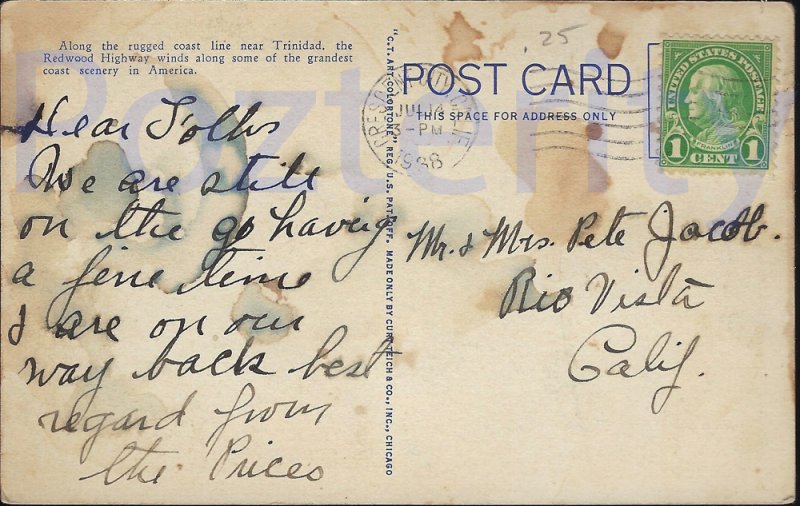 Along the rugged coast line near Trinidad, the
Redwood Highway winds along some of the grandest
coast scenery in America.
Dear Folks
We are still
on the go having
a fine time
& are on our
way back best
regard from
the Prices
"C.T. ART-COLORTONE" REG. U.S. PAT. OFF. MADE ONLY BY CURT TEICH & CO., INC., CHICAGO
.25
POST CARD
THIS SPACE FOR ADDRESS ONLY
CRESCENT CITY, CALIF.
JUL 14
3-PM
1938
UNITED STATES POSTAGE
FRANKLIN
1 CENT 1
Mr. & Mrs. Pete Jacob.
Rio Vista
Calif.